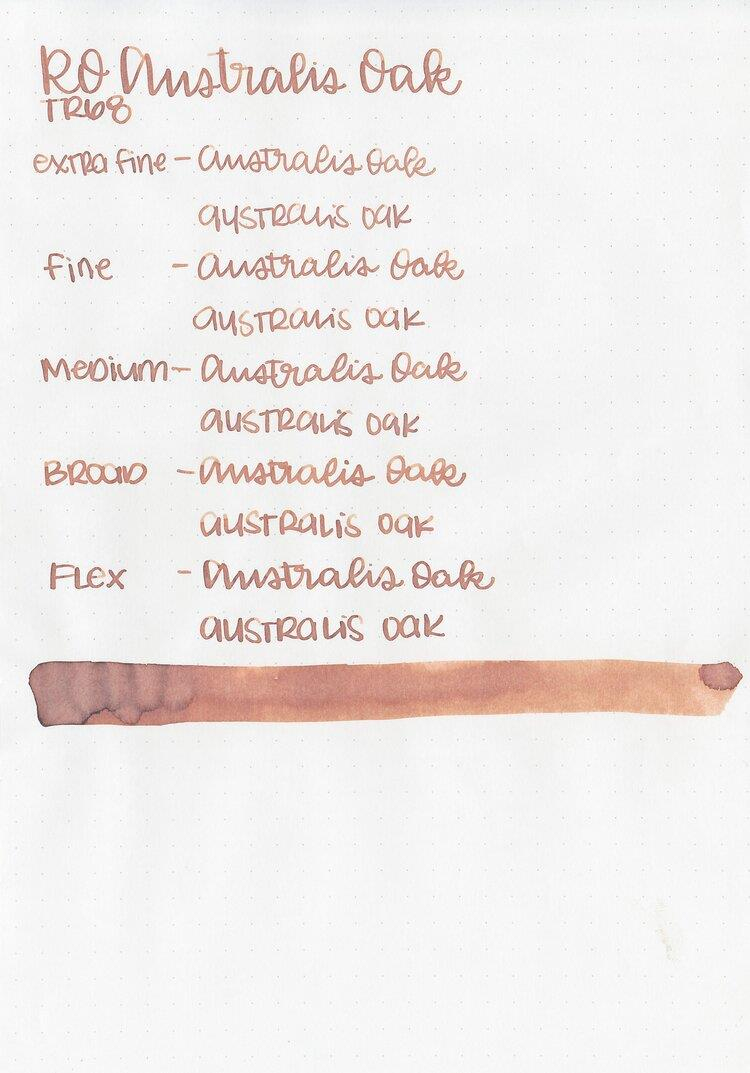 RO Australis Oak
TR68
extra fine - Australis Oak
australis oak
fine - Australis Oak
australis oak
Medium - Australis Oak
australis oak
Broad - Australis Oak
australis oak
Flex - Australis Oak
australis oak